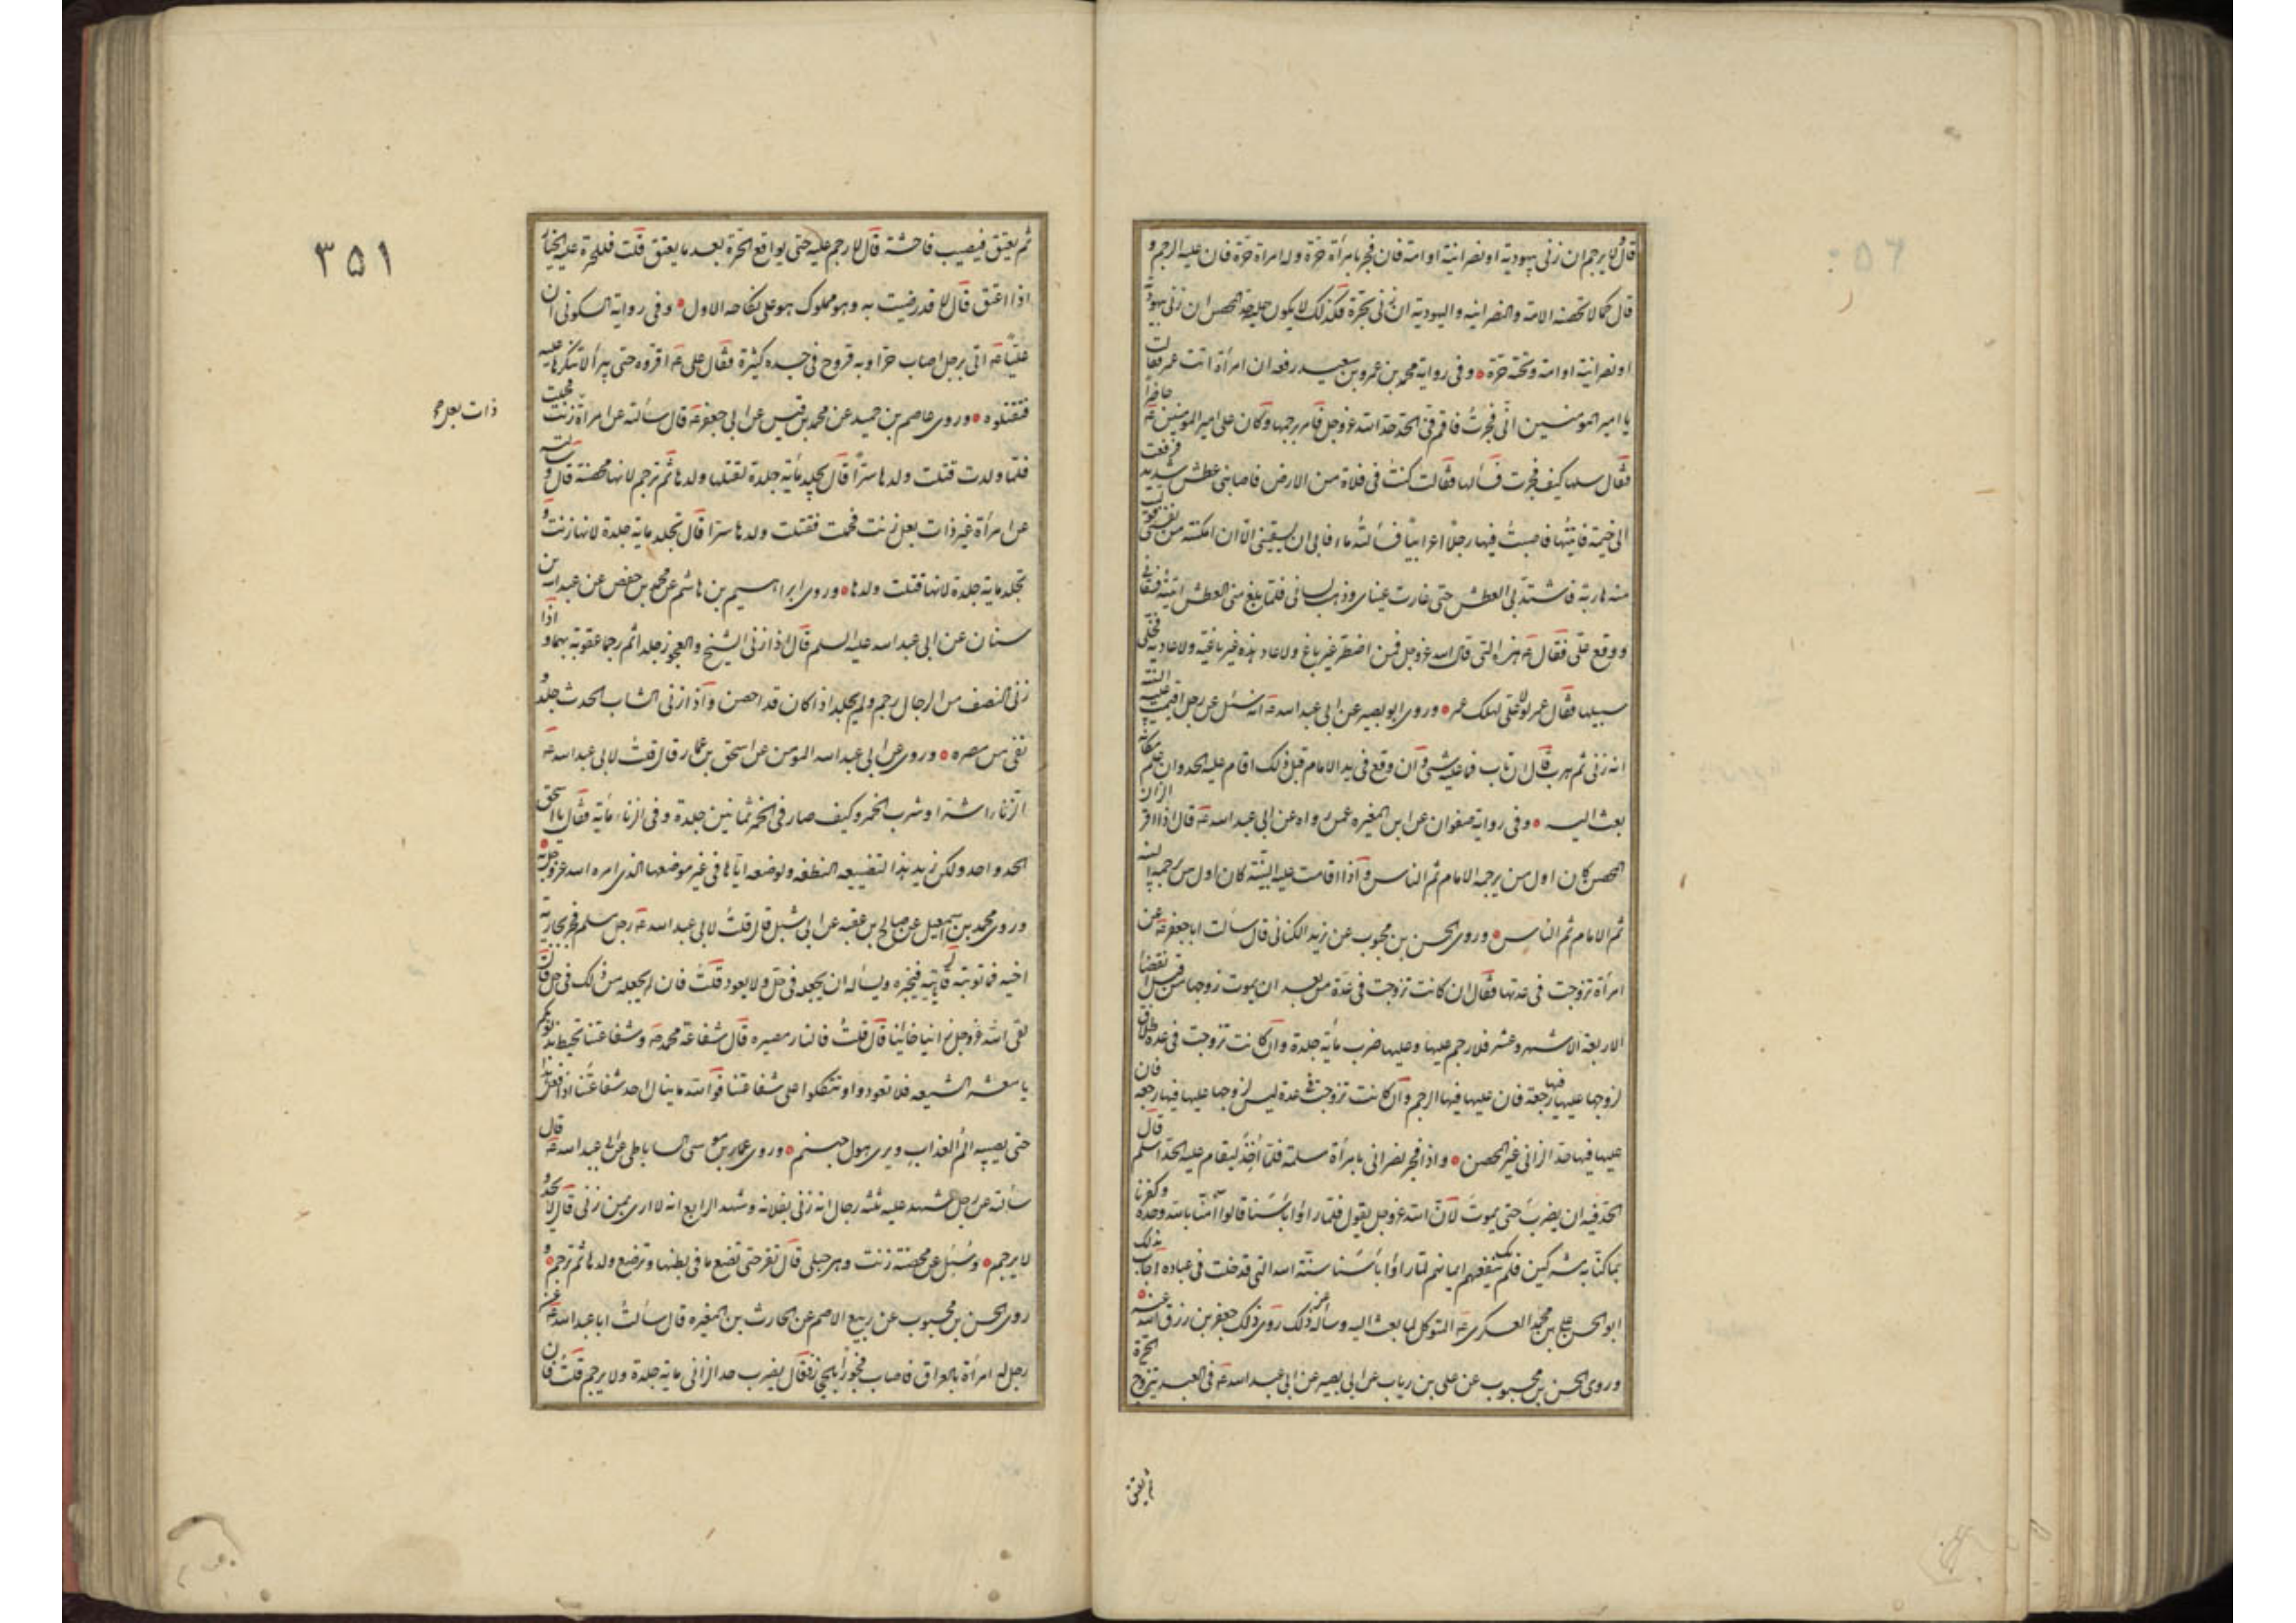 قال و لا يرجم ان زنى بيهودية او نصرانية او امة فان فجر بامرأة حرة وله امرأة حرة فان عليه الرجم و
قال كما لا تحصنه الامة والنصرانية واليهودية ان زنى بحرة فكذلك لا يكون عليه حد المحصن ان زنى بيهودية
او نصرانية او امة وتحته حرة وفى رواية محمد بن عمرو بن سعيد رفعه ان امرأة اتت عمر فقالت
يا امير المومنين انى فجرت فاقم فىّ الحد حد الله عز وجل فامر برجمها وكان على امير المومنين عه حاضرا
فقال سلها كيف فجرت فسألها فقالت كنت فى فلاة من الارض فاصابنى عطش شديد فرفعت
الى خيمة فاتيتها فاصبت فيها رجلا اعرابيا فسألته ماء فابى ان يسقينى الا ان امكنته من نفسى فوليت
منه هاربة فاشتد بى العطش حتى غارت عيناى وذهب لسانى فلما بلغ منى العطش اتيته فسقانى
ووقع علىّ فقال عه هذه التى قال الله عز وجل فمن اضطر غير باغ ولا عاد هذه غير باغية ولا عادية فخلى
سبيلها فقال عمر لولا على لهلك عمر وروى ابو بصير عن ابى عبد الله عه انه سئل عن رجل اقيمت عليه البينة
انه زنى ثم هرب قال ان تاب فما عليه شئ وان وقع فى يد الامام قبل ذلك اقام عليه الحد وان علم مكانه
بعث اليه وفى رواية صفوان عن ابن المغيره عمن رواه عن ابى عبد الله عه قال اذا اقر الزانى
المحصن كان اول من يرجمه الامام ثم الناس واذا قامت عليه البينة كان اول من يرجمه البينة
ثم الامام ثم الناس وروى الحسن بن محبوب عن يزيد الكناسى قال سالت ابا جعفر عه عن
امرأة تزوجت فى عدتها فقال ان كانت تزوجت فى عدة من بعد ان يموت زوجها من قبل انقضاء
الاربعة الاشهر وعشر فلا رجم عليها وعليها ضرب مأية جلدة وان كانت تزوجت فى عدة طلاق
لزوجها عليها فيها رجعة فان عليها فيها الرجم وان كانت تزوجت فى عدة ليس لزوجها عليها فيها رجعة فان
عليها فيها حد الزانى غير المحصن واذا فجر نصرانى بامرأة مسلمة فلما اخذ ليقام عليه الحد اسلم قال
الحد فيه ان يضرب حتى يموت لان الله عز وجل يقول فلما راؤا باسنا قالوا آمنا بالله وحده وكفرنا
بما كنا به مشركين فلم يك ينفعهم ايمانهم لما راؤا بأسنا سنة الله التى قد خلت فى عباده اجاب بذلك
ابو الحسن على بن محمد العسكرى عه المتوكل لما بعث اليه وساله عن ذلك روى ذلك جعفر بن رزق الله عنه
وروى الحسن بن محبوب عن على بن رياب عن ابى بصير عن ابى عبد الله عه فى العبد يتزوج الحرة
ثم يعتق
٣٥١
ثم يعتق فيصيب فاحشة قال لا رجم عليه حتى يواقع الحرة بعد ما يعتق قلت فللحرة عليه الخيار
اذا اعتق قال لا قد رضيت به وهو مملوك هو على نكاحه الاول وفى رواية السكونى ان
عليا عه اتى برجل اصاب حدا وبه قروح فى جسده كثيرة فقال على عه اقروه حتى يبرأ لا تنكؤها عليه
فتقتلوه وروى عاصم بن حميد عن محمد بن قيس عن ابى جعفر عه قال سألته عن امراة زنت فحبلت
ذات بعل صح
فلما ولدت قتلت ولدها سرا قال تجلد مأية جلدة لقتلها ولدها ثم ترجم لانها محصنة قال و سالته
عن امرأة غير ذات بعل زنت فحملت فقتلت ولدها سرا قال تجلد ماية جلدة لانها زنت و
تجلد ماية جلدة لانها قتلت ولدها وروى ابراهيم بن هاشم عن محمد بن حفص عن عبد الله بن
سنان عن ابى عبد الله عليه السلم قال اذا زنى الشيخ والعجوز جلدا ثم رجما عقوبة لهما و اذا
زنى النصف من الرجال رجم ولم يجلد اذا كان قد احصن واذا زنى الشاب الحدث جلد و
نفى من مصره وروى عن ابى عبد الله المومن عن اسحق بن عمار قال قلت لابى عبد الله عه
الزنا اشد او شرب الخمر وكيف صار فى الخمر ثمانين جلدة وفى الزناء مأية فقال يا اسحق
الحد واحد ولكن زيد هذا لتضييعه النطفه ولوضعه اياها فى غير موضعها الذى امره الله عز وجل به
وروى محمد بن اسمعيل عن صالح بن عقبه عن ابى شبل قال قلت لابى عبد الله عه رجل مسلم فجر بجارية
اخيه فما توبته قال ياتيه فيخبره ويسأله ان يجعله فى حل ولا يعود قلت فان لم يجعله من ذلك فى حل قال
لقى الله عز وجل زانيا خائنا قال قلت فالنار مصيره قال شفاعة محمد صه وشفاعتنا تحيط بذنوبكم
يا معشر الشيعه فلا تعودوا وتتكلوا على شفاعتنا فوالله ما ينال احد شفاعتنا اذا فعل هذا
حتى يصيبه الم العذاب ويرى هول جهنم وروى عمار بن موسى الساباطى عن ابى عبد الله عه قال
سألته عن رجل شهد عليه ثلثة رجال انه زنى بفلانه وشهد الرابع انه لا ارى بمن زنى قال لا يحد و
لا يرجم وسئل عن محصنة زنت وهى حبلى قال تقر حتى تضع ما فى بطنها وترضع ولدها ثم ترجم و
روى الحسن بن محبوب عن ربيع الاصم عن الحارث بن المغيره قال سألت ابا عبد الله عه عن
رجل له امرأة بالعراق فاصاب فجورا بالحجاز فقال يضرب حد الزانى ماية جلدة ولا يرجم قلت فان